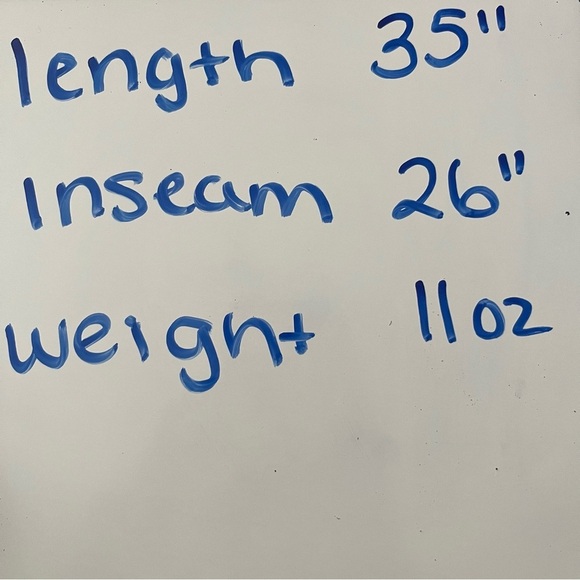 length 35"
Inseam 26"
weight 11 oz